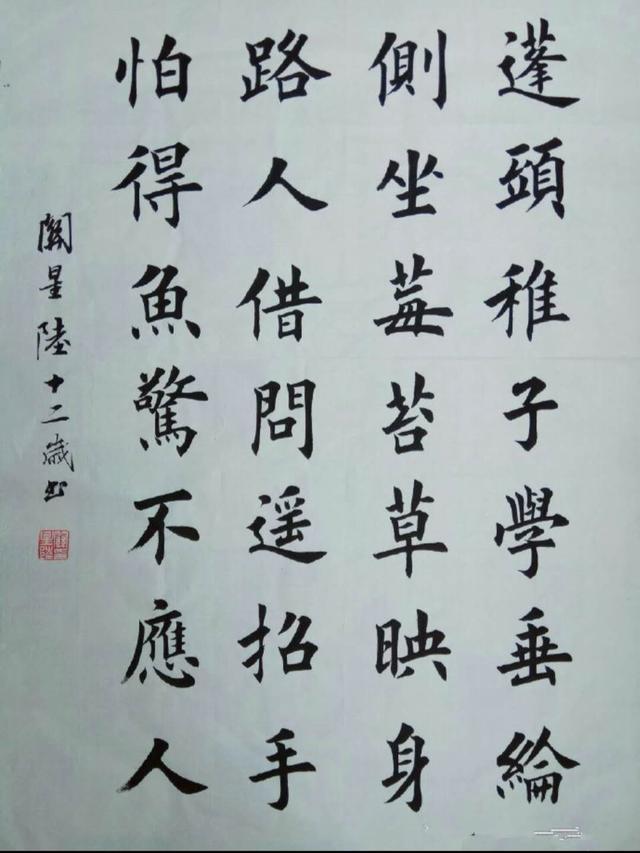 蓬頭稚子學垂綸
側坐莓苔草映身
路人借問遥招手
怕得魚驚不應人
關星陸十二歲书